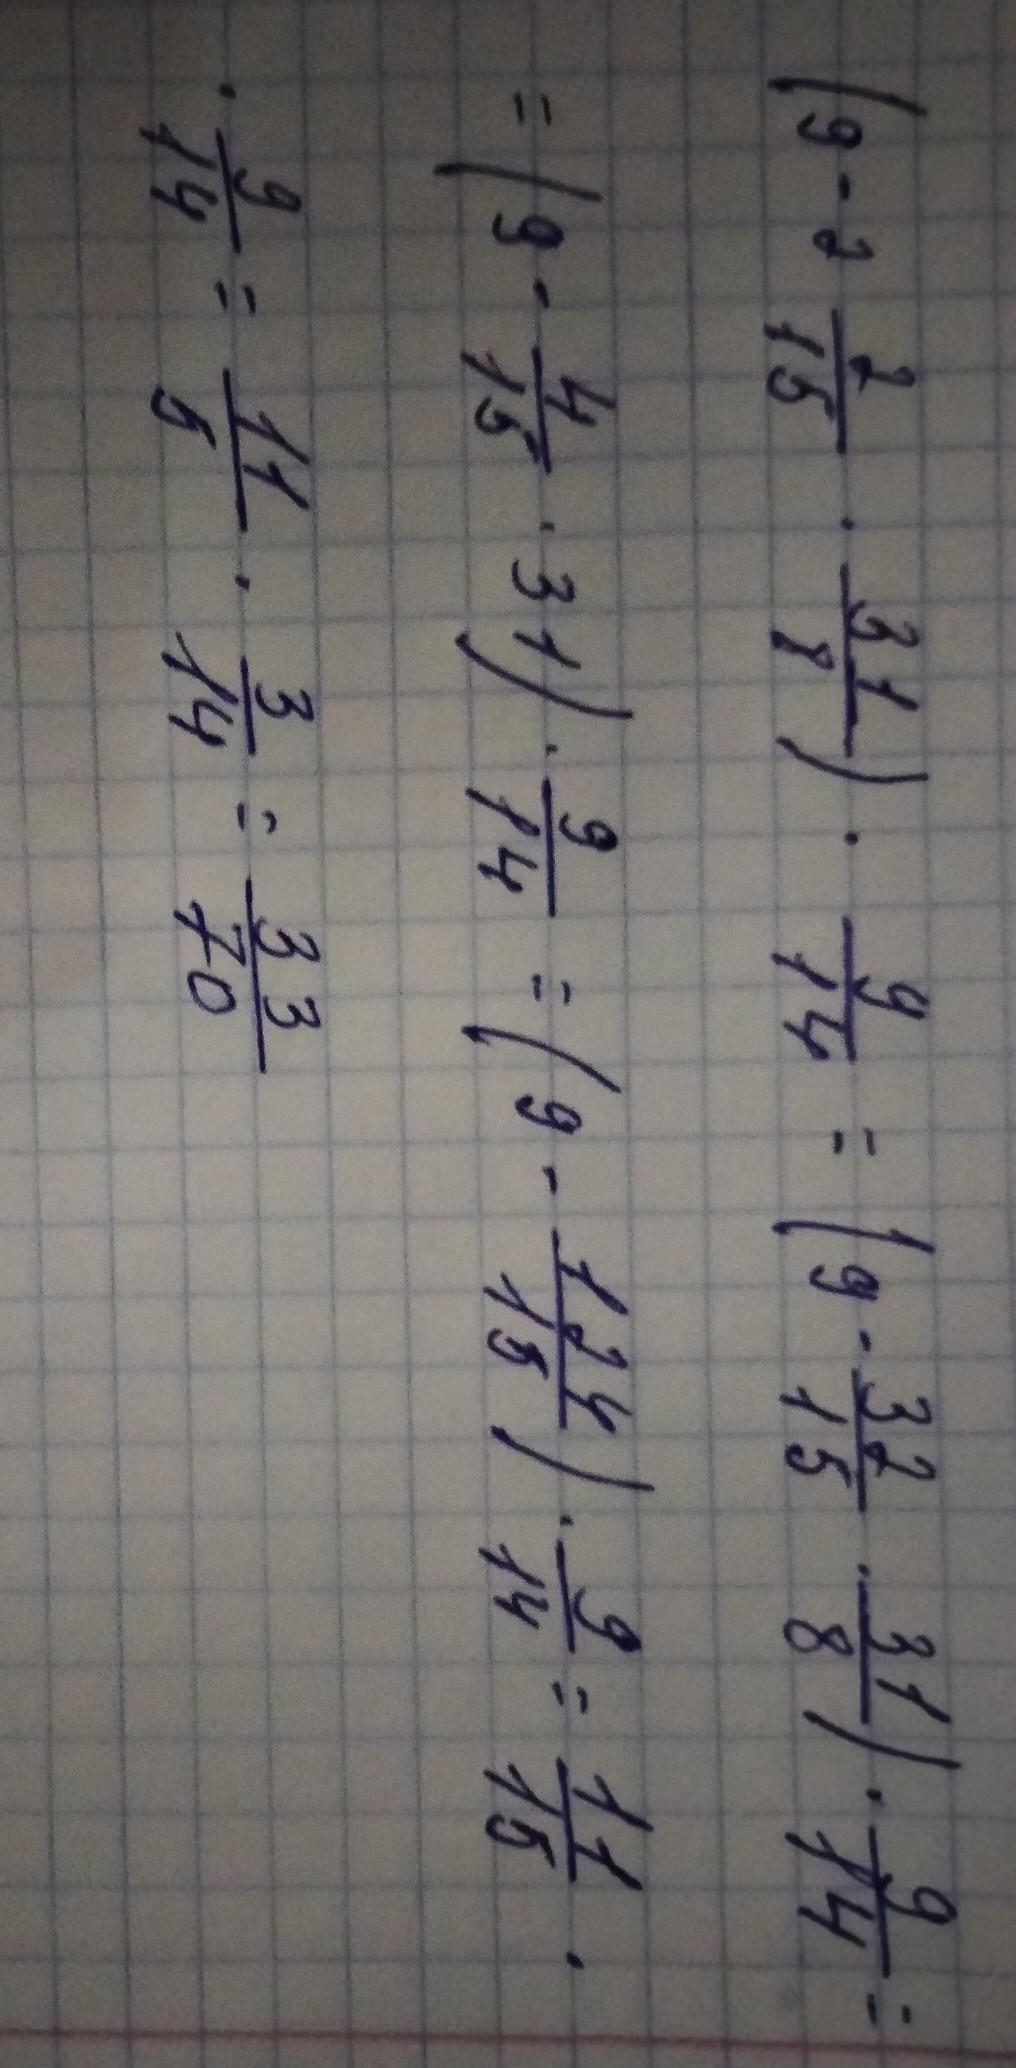 (9 - 2 2/15 · 31/8) · 9/14 = (9 - 32/15 · 31/8) · 9/14 =
= (9 - 4/15 · 31) · 9/14 = (9 - 124/15) · 9/14 = 11/15 ·
· 9/14 = 11/5 · 3/14 = 33/70